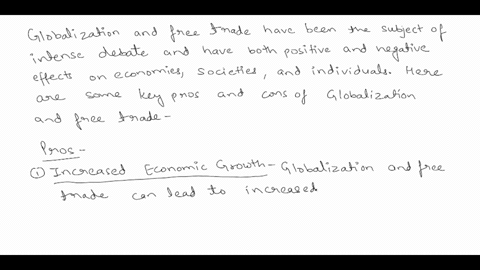 Globalization and free trade have been the subject of
intense debate and have both positive and negative
effects on economies, societies, and individuals. Here
are some key pros and cons of Globalization
and free trade-
Pros-
① Increased Economic Growth- Globalization and free
trade can lead to increased